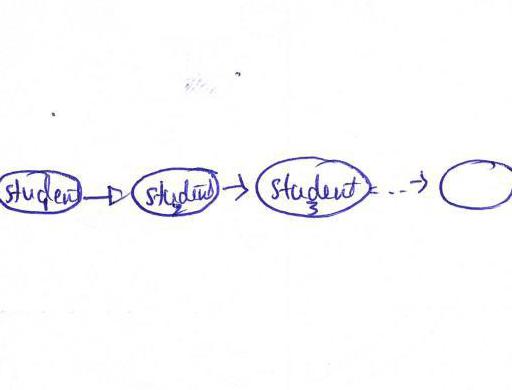 student
1
student
2
student
3